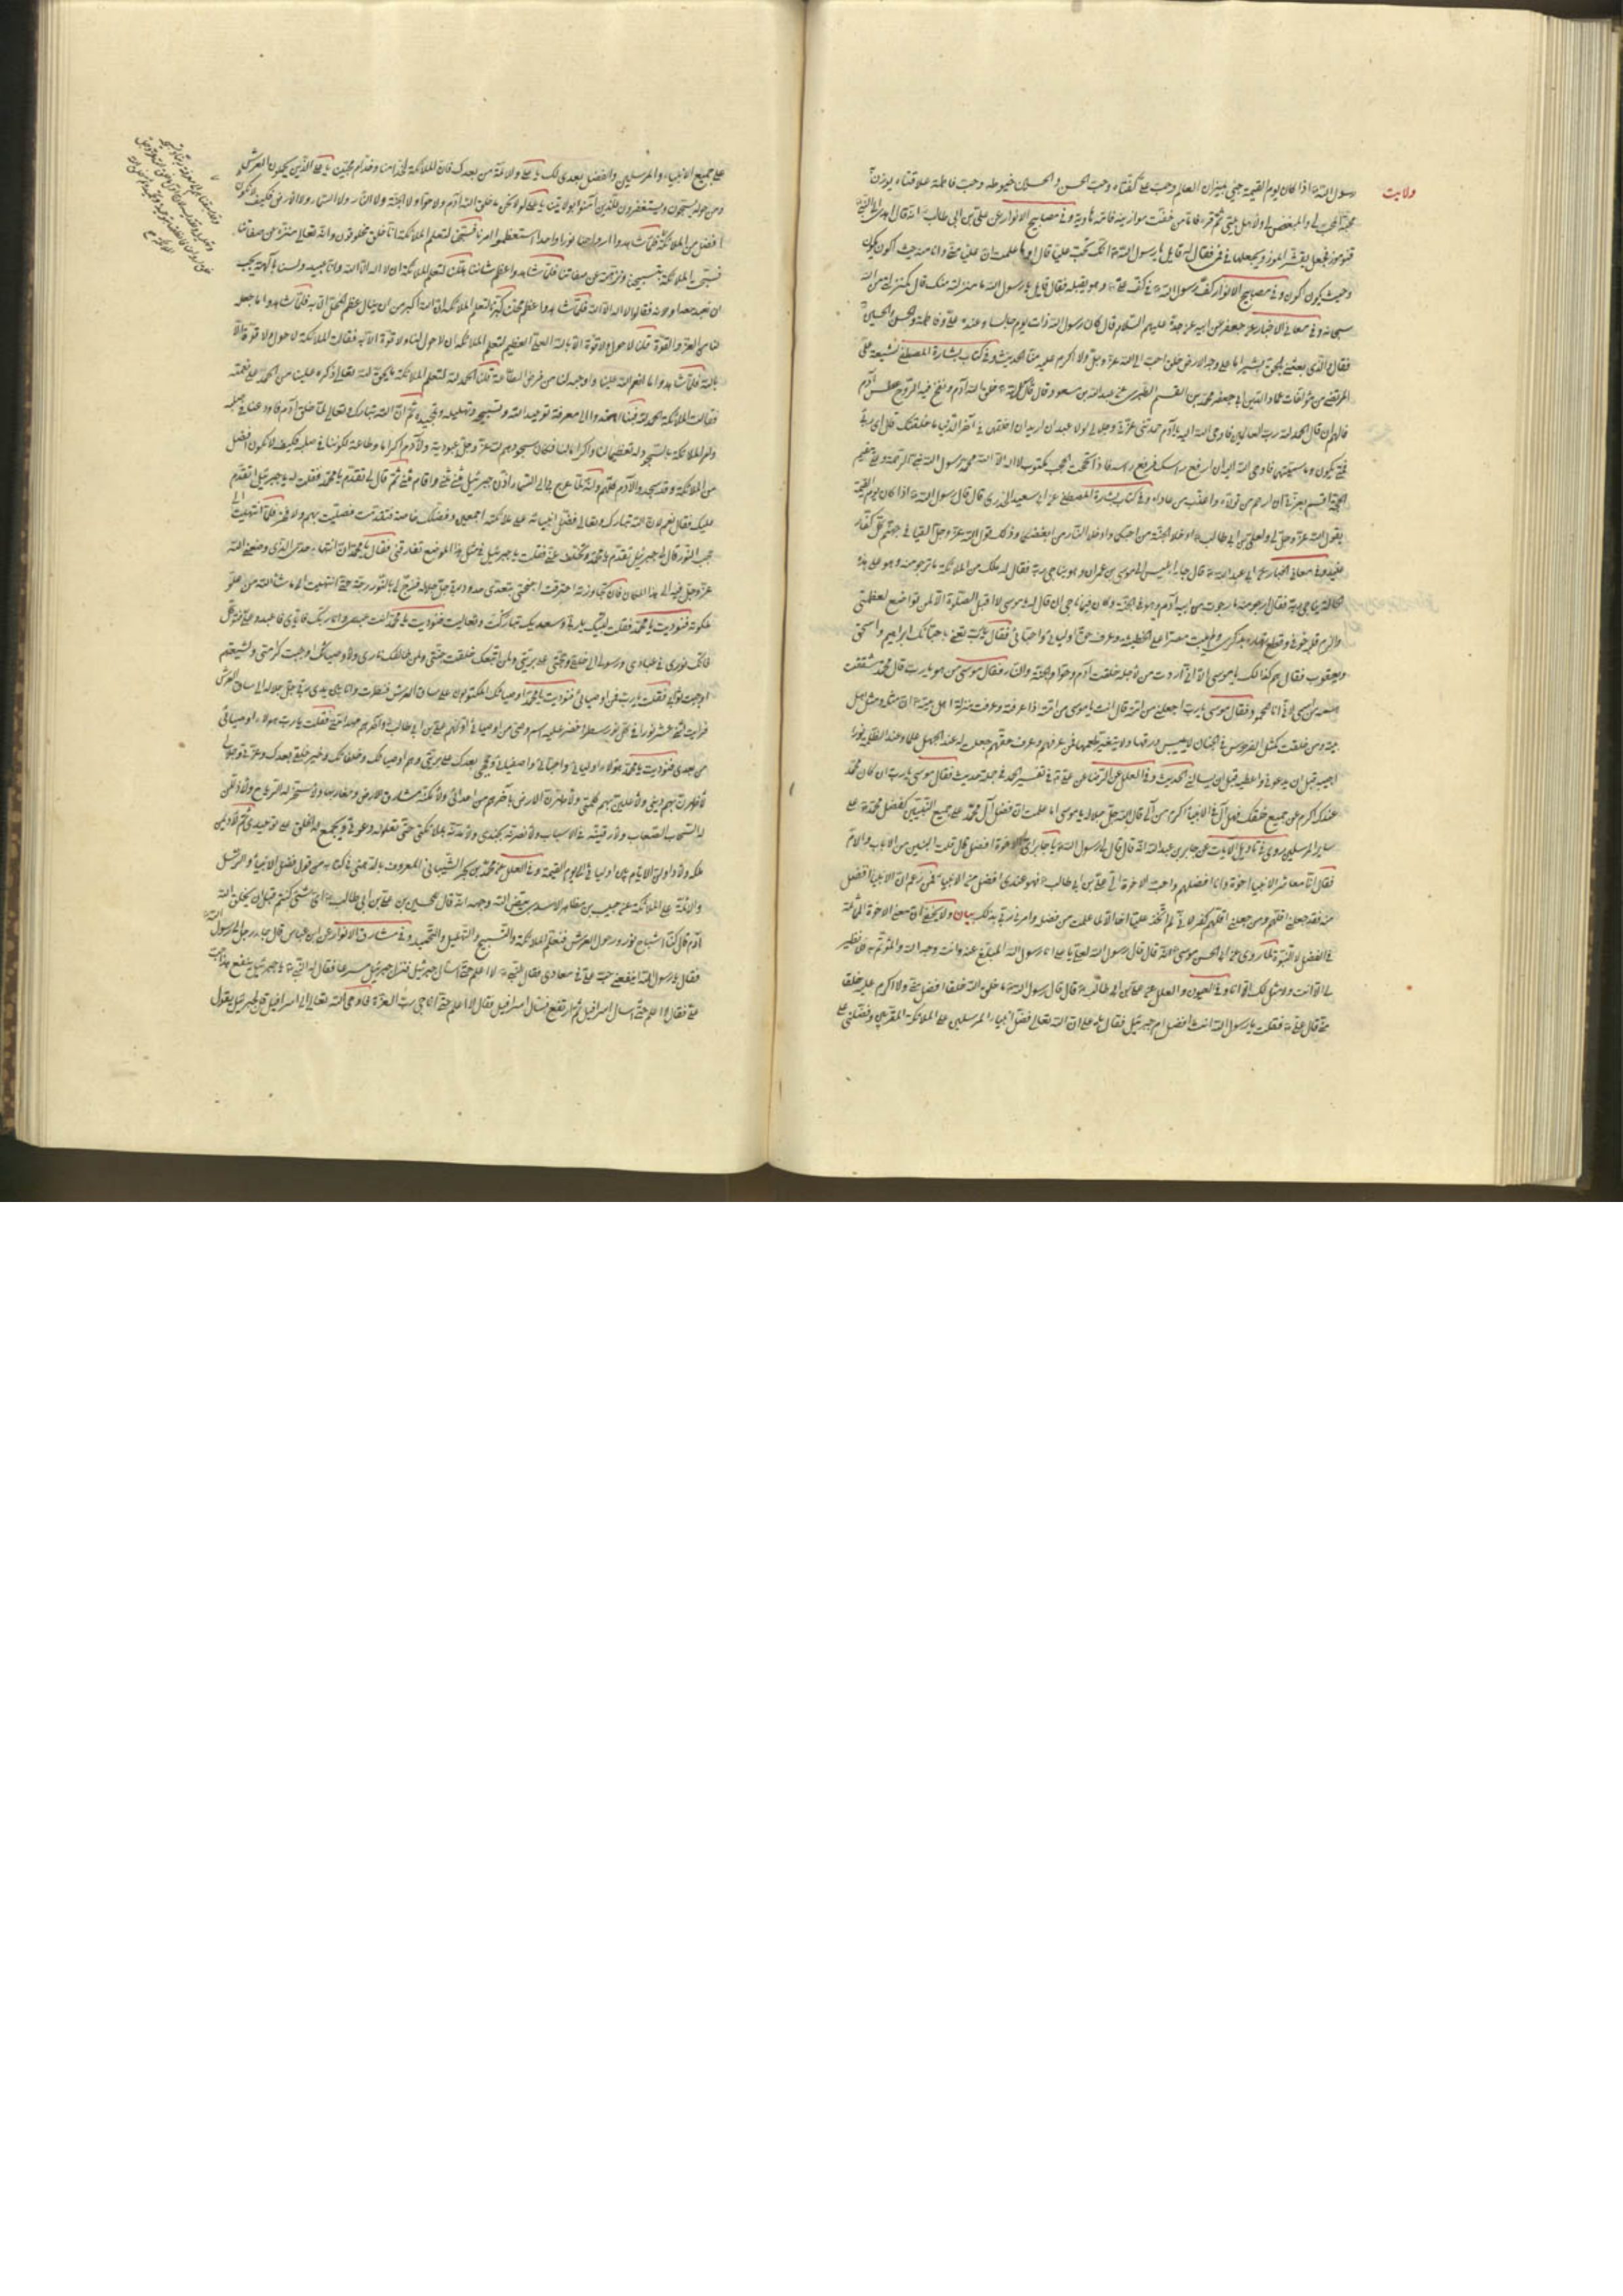 ولايت
رسول الله اذا كان يوم القيمة جئ بميزان العالم وحب علي كفتاه وحب الحسن والحسين خيوطه وحب فاطمة علاقتاه يوزن
محبة المحب لي والمبغض لي ولاهل بيتي ثم قرء فاما من خفت موازينه فامه هاوية وفي مصابيح الانوار عن علي بن ابي طالب انه قال اهدي الى النبي
قنو موز فجعل يقشر الموز ويجعلها في فمي فقال له قايل يا رسول الله انك تحب عليا قال اوما علمت ان عليا مني وانا منه حيث اكون يكون
وحيث يكون اكون وفي مصابيح الانوار كف رسول الله في كف علي وهو يقبله فقال قايل يا رسول الله ما منزلته منك قال كمنزلتي من الله
وفي معاني الاخبار عن جعفر عن ابيه عن جده عليهم السلام قال كان رسول الله ذات يوم جالسا وعنده علي وفاطمة والحسن والحسين
فقال والذي بعثني بالحق بشيرا ما على وجه الارض خلق احب الى الله عز وجل ولا اكرم عليه منا الحديث وفي كتاب بشارة المصطفى لشيعة علي
المرتضى من مؤلفات عماد الدين ابي جعفر محمد بن القسم الطبري عن عبد الله بن مسعود قال قال رسول الله خلق الله آدم ونفخ فيه الروح عطس آدم
فالهم ان قال الحمد لله رب العالمين فاوحى الله اليه يا آدم حمدتني وعزتي وجلالي لولا عبدان اريد ان اخلقهما في آخر الدنيا ما خلقتك قال اي رب
فمتى يكونان وما سميتهما فاوحى الله اليه ان ارفع راسك فرفع راسه فاذا تحت العرش مكتوب لا اله الا الله محمد رسول الله نبي الرحمة وعلي مقيم
الحجة اقسم بعزتي ان ارحم من تولاه واعذب من عاداه وفي كتاب بشارة المصطفى عن ابي سعيد الخدري قال قال رسول الله اذا كان يوم القيمة
يقول الله عز وجل لي ولعلي بن ابي طالب ادخلا الجنة من احبكما وادخلا النار من ابغضكما وذلك قول الله عز وجل القيا في جهنم كل كفار
عنيد وفي معاني الاخبار عن ابي عبد الله قال جاء ابليس الى موسى بن عمران وهو يناجي ربه فقال له ملك من الملائكة ما ترجو منه وهو على هذه
الحالة يناجي ربه فقال ارجو منه ما رجوت من ابيه آدم وهو في الجنة وكان فيما ناجى ان قال له يا موسى لا اقبل الصلوة الا لمن تواضع لعظمتي
والزم قلبه خوفي وقطع نهاره بذكري ولم يبت مصرا على الخطيئة وعرف حق اوليائي واحبائي فقال يا رب تعني باحبائك ابراهيم واسحق
ويعقوب فقال هم كذلك يا موسى الا اني اردت من من اجله خلقت آدم وحوا والجنة والنار فقال موسى من هو يا رب قال محمد شققت
اسمه من اسمي لاني انا المحمود فقال موسى يا رب اجعلني من امته قال انت يا موسى من امته اذا عرفته وعرفت منزلته ومنزلة اهل بيته ان مثله ومثل اهل
بيته ومن خلقت كمثل الفردوس في الجنان لا ييبس ورقها ولا يتغير طعمها فمن عرفهم وعرف حقهم جعلت له عند الجهل علما وعند الظلمة نورا
اجيبه قبل ان يدعوني واعطيه قبل ان يسالني الحديث وفي العلل عن الرضا عن علي في تفسير الحمد في جملة حديث فقال موسى يا رب ان كان محمد
عندك اكرم من جميع خلقك فهل في آل الانبياء اكرم من آلي قال الله جل جلاله يا موسى اما علمت ان فضل آل محمد على جميع النبيين كفضل محمد على
ساير المرسلين روي في تاويل الايات عن جابر بن عبد الله انه قال قال لي رسول الله يا جابر اي الاخوة افضل قال قلت البنين من الاب والام
فقال انا معاشر الانبياء اخوة وانا افضلهم واحب الاخوة الي علي بن ابي طالب فهو عندي افضل من الانبياء فمن زعم ان الانبياء افضل
منه فقد جعلني اقلهم ومن جعلني اقلهم كفر لاني لم اتخذ عليا اخا الا لما علمت من فضله وامرني ربي بذلك بيان ولا يخفى ان معنى الاخوة المماثلة
في الفضل الا النبوة لما روي عن ابي الحسن موسى قال قال رسول الله لعلي يا علي انا رسول الله المبلغ عنه وانت وجه الله والمؤتم به فلا نظير
لي الا انت ولا مثل لك الا انا وفي العيون والعلل عن علي بن ابي طالب قال قال رسول الله ما خلق الله خلقا افضل مني ولا اكرم عليه خلقا
مني قال علي فقلت يا رسول الله انت افضل ام جبرئيل فقال يا علي ان الله تعالى فضل انبياءه المرسلين على الملائكة المقربين وفضلني على
على جميع الانبياء والمرسلين والفضل بعدي لك يا علي وللائمة من بعدك فان الملائكة لخدامنا وخدام محبينا يا علي الذين يحملون العرش
ومن حوله يسبحون ويستغفرون للذين آمنوا بولايتنا يا علي لولا نحن ما خلق الله آدم ولا حوا ولا الجنة ولا النار ولا السماء ولا الارض فكيف لا نكون
افضل من الملائكة
فلما شاهدوا ارواحنا نورا واحدا استعظموا امرنا فسبحنا لتعلم الملائكة انا خلق مخلوقون وانه تعالى منزه عن صفاتنا
فسبحت الملائكة بتسبيحنا ونزهته عن صفاتنا فلما شاهدوا عظم شاننا هللنا لتعلم الملائكة ان لا اله الا الله وانا عبيد ولسنا بآلهة يجب
ان نعبد معه او دونه فقالوا لا اله الا الله فلما شاهدوا عظم محلنا كبرنا لتعلم الملائكة ان الله اكبر من ان ينال عظم المحل الا به فلما شاهدوا ما جعله
لنا من العز والقوة قلنا لا حول ولا قوة الا بالله العلي العظيم لتعلم الملائكة ان لا حول لنا ولا قوة الا به فقالت الملائكة لا حول ولا قوة الا
بالله فلما شاهدوا ما انعم الله علينا واوجبه لنا من فرض الطاعة قلنا الحمد لله لتعلم الملائكة ما يحق لله تعالى ذكره علينا من الحمد على نعمته
فقالت الملائكة الحمد لله فبنا اهتدوا الى معرفة توحيد الله وتسبيحه وتهليله وتمجيده ثم ان الله تبارك وتعالى لما خلق آدم فاودعنا صلبه
وامر الملائكة بالسجود له تعظيما لنا واكراما لنا فكان سجودهم لله عز وجل عبودية ولآدم اكراما وطاعة لكوننا في صلبه فكيف لا نكون افضل
من الملائكة وقد سجدوا لآدم كلهم وانه لما عرج بي الى السماء اذن جبرئيل مثنى مثنى واقام مثنى ثم قال لي تقدم يا محمد فقلت له يا جبرئيل اتقدم
عليك فقال نعم لان الله تبارك وتعالى فضل انبياءه على ملائكته اجمعين وفضلك خاصة فتقدمت فصليت بهم ولا فخر فلما انتهيت الى
حجب النور قال لي جبرئيل تقدم يا محمد وتخلف عني فقلت يا جبرئيل في مثل هذا الموضع تفارقني فقال يا محمد ان انتهاء حدي الذي وضعني الله
عز وجل فيه الى هذا المكان فان تجاوزته احترقت اجنحتي بتعدي حدود ربي جل جلاله فزج بي في النور زجة حتى انتهيت الى ما شاء الله من علو
ملكوته فنوديت يا محمد فقلت لبيك ربي وسعديك تباركت وتعاليت فنوديت يا محمد انت عبدي وانا ربك فاياي فاعبد وعلي فتوكل
فانك نوري في عبادي ورسولي الى خلقي وحجتي على بريتي ولمن اتبعك خلقت جنتي ولمن خالفك ناري ولاوصيائك اوجبت كرامتي ولشيعتهم
اوجبت ثوابي فقلت يا رب ومن اوصيائي فنوديت يا محمد اوصياؤك المكتوبون على ساق العرش فنظرت وانا بين يدي ربي جل جلاله الى ساق العرش
فرايت اثني عشر نورا في كل نور سطر اخضر عليه اسم وصي من اوصيائي اولهم علي بن ابي طالب وآخرهم مهدي امتي فقلت يا رب هؤلاء اوصيائي
من بعدي فنوديت يا محمد هؤلاء اوليائي واحبائي واصفيائي وحججي بعدك على بريتي وهم اوصياؤك وخلفاؤك وخير خلقي بعدك وعزتي وجلالي
لاظهرن بهم ديني ولاعلين بهم كلمتي ولاطهرن الارض بآخرهم من اعدائي ولامكننه مشارق الارض ومغاربها ولاسخرن له الرياح ولاذللن
له السحاب الصعاب ولارقينه في الاسباب ولانصرنه بجندي ولامدنه بملائكتي حتى تعلو دعوتي ويجمع الخلق على توحيدي ثم لاديمن
ملكه ولاداولن الايام بين اوليائي الى يوم القيمة وفي العلل عن محمد بن بحر الشيباني المعروف بالدهني في كتابه من قول فضل الانبياء والرسل
والائمة على الملائكة عن حبيب بن مظاهر الاسدي بيض الله وجهه انه قال للحسين بن علي بن ابي طالب اي شئ كنتم قبل ان يخلق الله
آدم قال كنا اشباح نور ندور حول العرش فنعلم الملائكة التسبيح والتهليل والتحميد وفي مشارق الانوار عن ابن عباس قال جاء رجل الى رسول الله
فقال يا رسول الله اينفعني حب علي في معادي فقال النبي لا اعلم حتى اسال جبرئيل فنزل جبرئيل مسرعا فقال له النبي يا جبرئيل اينفع هذا حب
علي فقال لا اعلم حتى اسال اسرافيل ثم ارتفع فسال اسرافيل فقال لا اعلم حتى اناجي رب العزة فاوحى الله تعالى الى اسرافيل قل لجبرئيل يقول